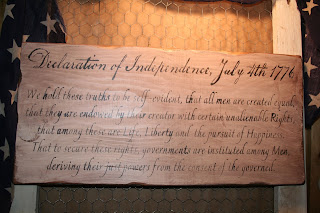 Declaration of Independence, July 4th 1776
We hold these truths to be self-evident, that all men are created equal,
that they are endowed by their creator with certain unalienable Rights,
that among these are Life, Liberty and the pursuit of Happiness.
That to secure these rights, governments are instituted among Men,
deriving their just powers from the consent of the governed.